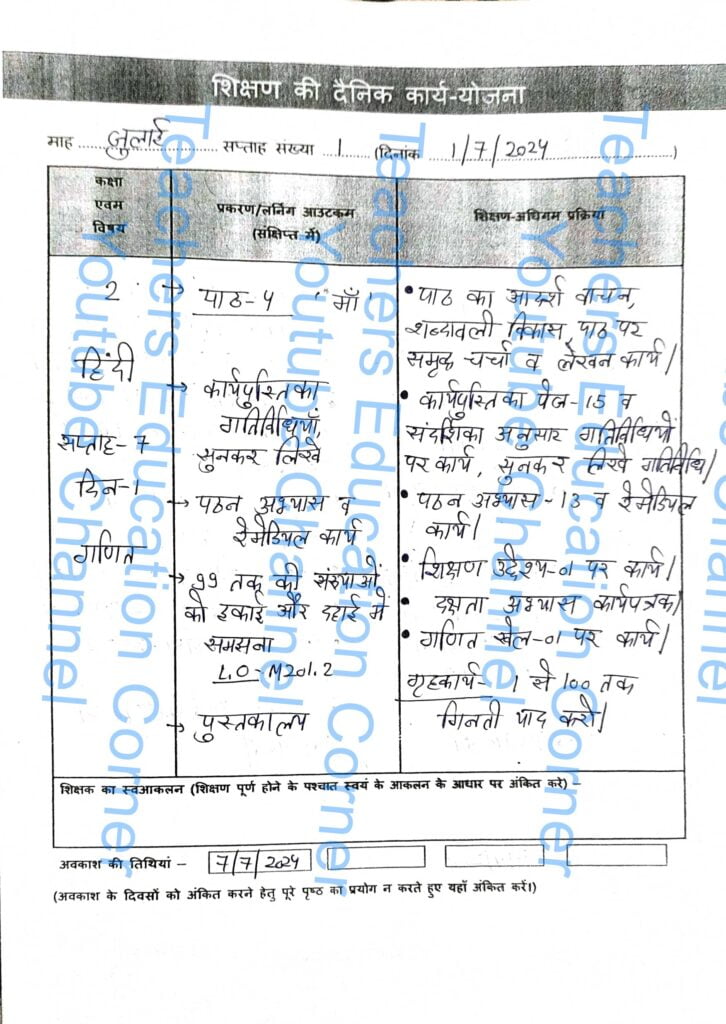 शिक्षण की दैनिक कार्य-योजना
माह ...जुलाई... सप्ताह संख्या ...1... (दिनांक ...1/7/2024...)
कक्षा एवम विषय
प्रकरण/लर्निंग आउटकम (संक्षिप्त में)
शिक्षण-अधिगम प्रक्रिया
2
हिंदी
सप्ताह-7
दिन-1
गणित
→ पाठ-4 "माँ"
→ कार्यपुस्तिका
गतिविधियाँ,
सुनकर लिखे
→ पठन अभ्यास व
रेमेडियल कार्य
→ 99 तक की संख्याओं
को इकाई और दहाई में
समझना
L.O-M201.2
→ पुस्तकालय
• पाठ का आदर्श वाचन,
शब्दावली विकास, पाठ पर
समृक चर्चा व लेखन कार्य|
• कार्यपुस्तिका पेज-15 व
संदर्शिका अनुसार गतिविधियों
पर कार्य, सुनकर लिखे गतिविधि|
• पठन अभ्यास-13 व रेमेडियल
कार्य|
• शिक्षण उद्देश्य-01 पर कार्य|
• दक्षता अभ्यास कार्यपत्रक|
• गणित खेल-01 पर कार्य|
गृहकार्य- 1 से 100 तक
गिनती याद करो|
शिक्षक का स्वआकलन (शिक्षण पूर्ण होने के पश्चात स्वयं के आकलन के आधार पर अंकित करे) –
अवकाश की तिथियां – 7/7/2024
(अवकाश के दिवसों को अंकित करने हेतु पूरे पृष्ठ का प्रयोग न करते हुए यहाँ अंकित करें।)
Teachers Education Corner
Youtube Channel
Teachers Education Corner
Youtube Channel
Teachers Education Corner
Youtube Channel